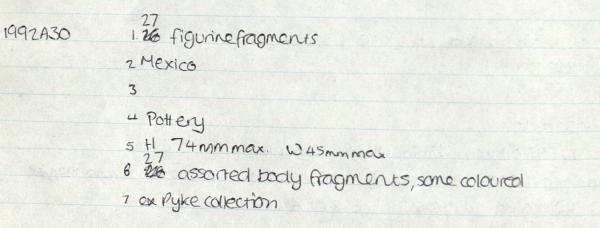 27
1992A30 1. 26 figurine fragments
2 Mexico
3
4 Pottery
5 H 74mm max. W45mm max
27
6 26 assorted body fragments, some coloured
7 ex Pyke collection